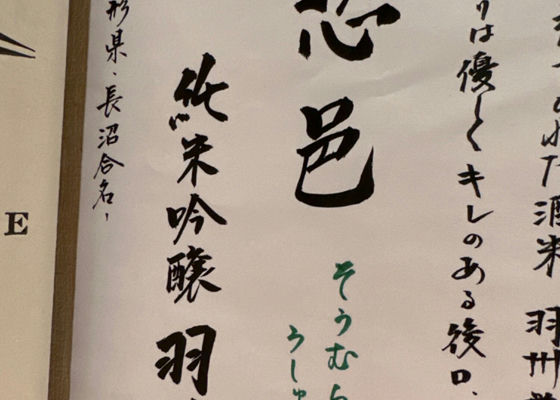 た酒米 羽州
りは優しくキレのある後口、
邑
そうむ
うしゅ
純米吟醸 羽
形県・長沼合名、
E